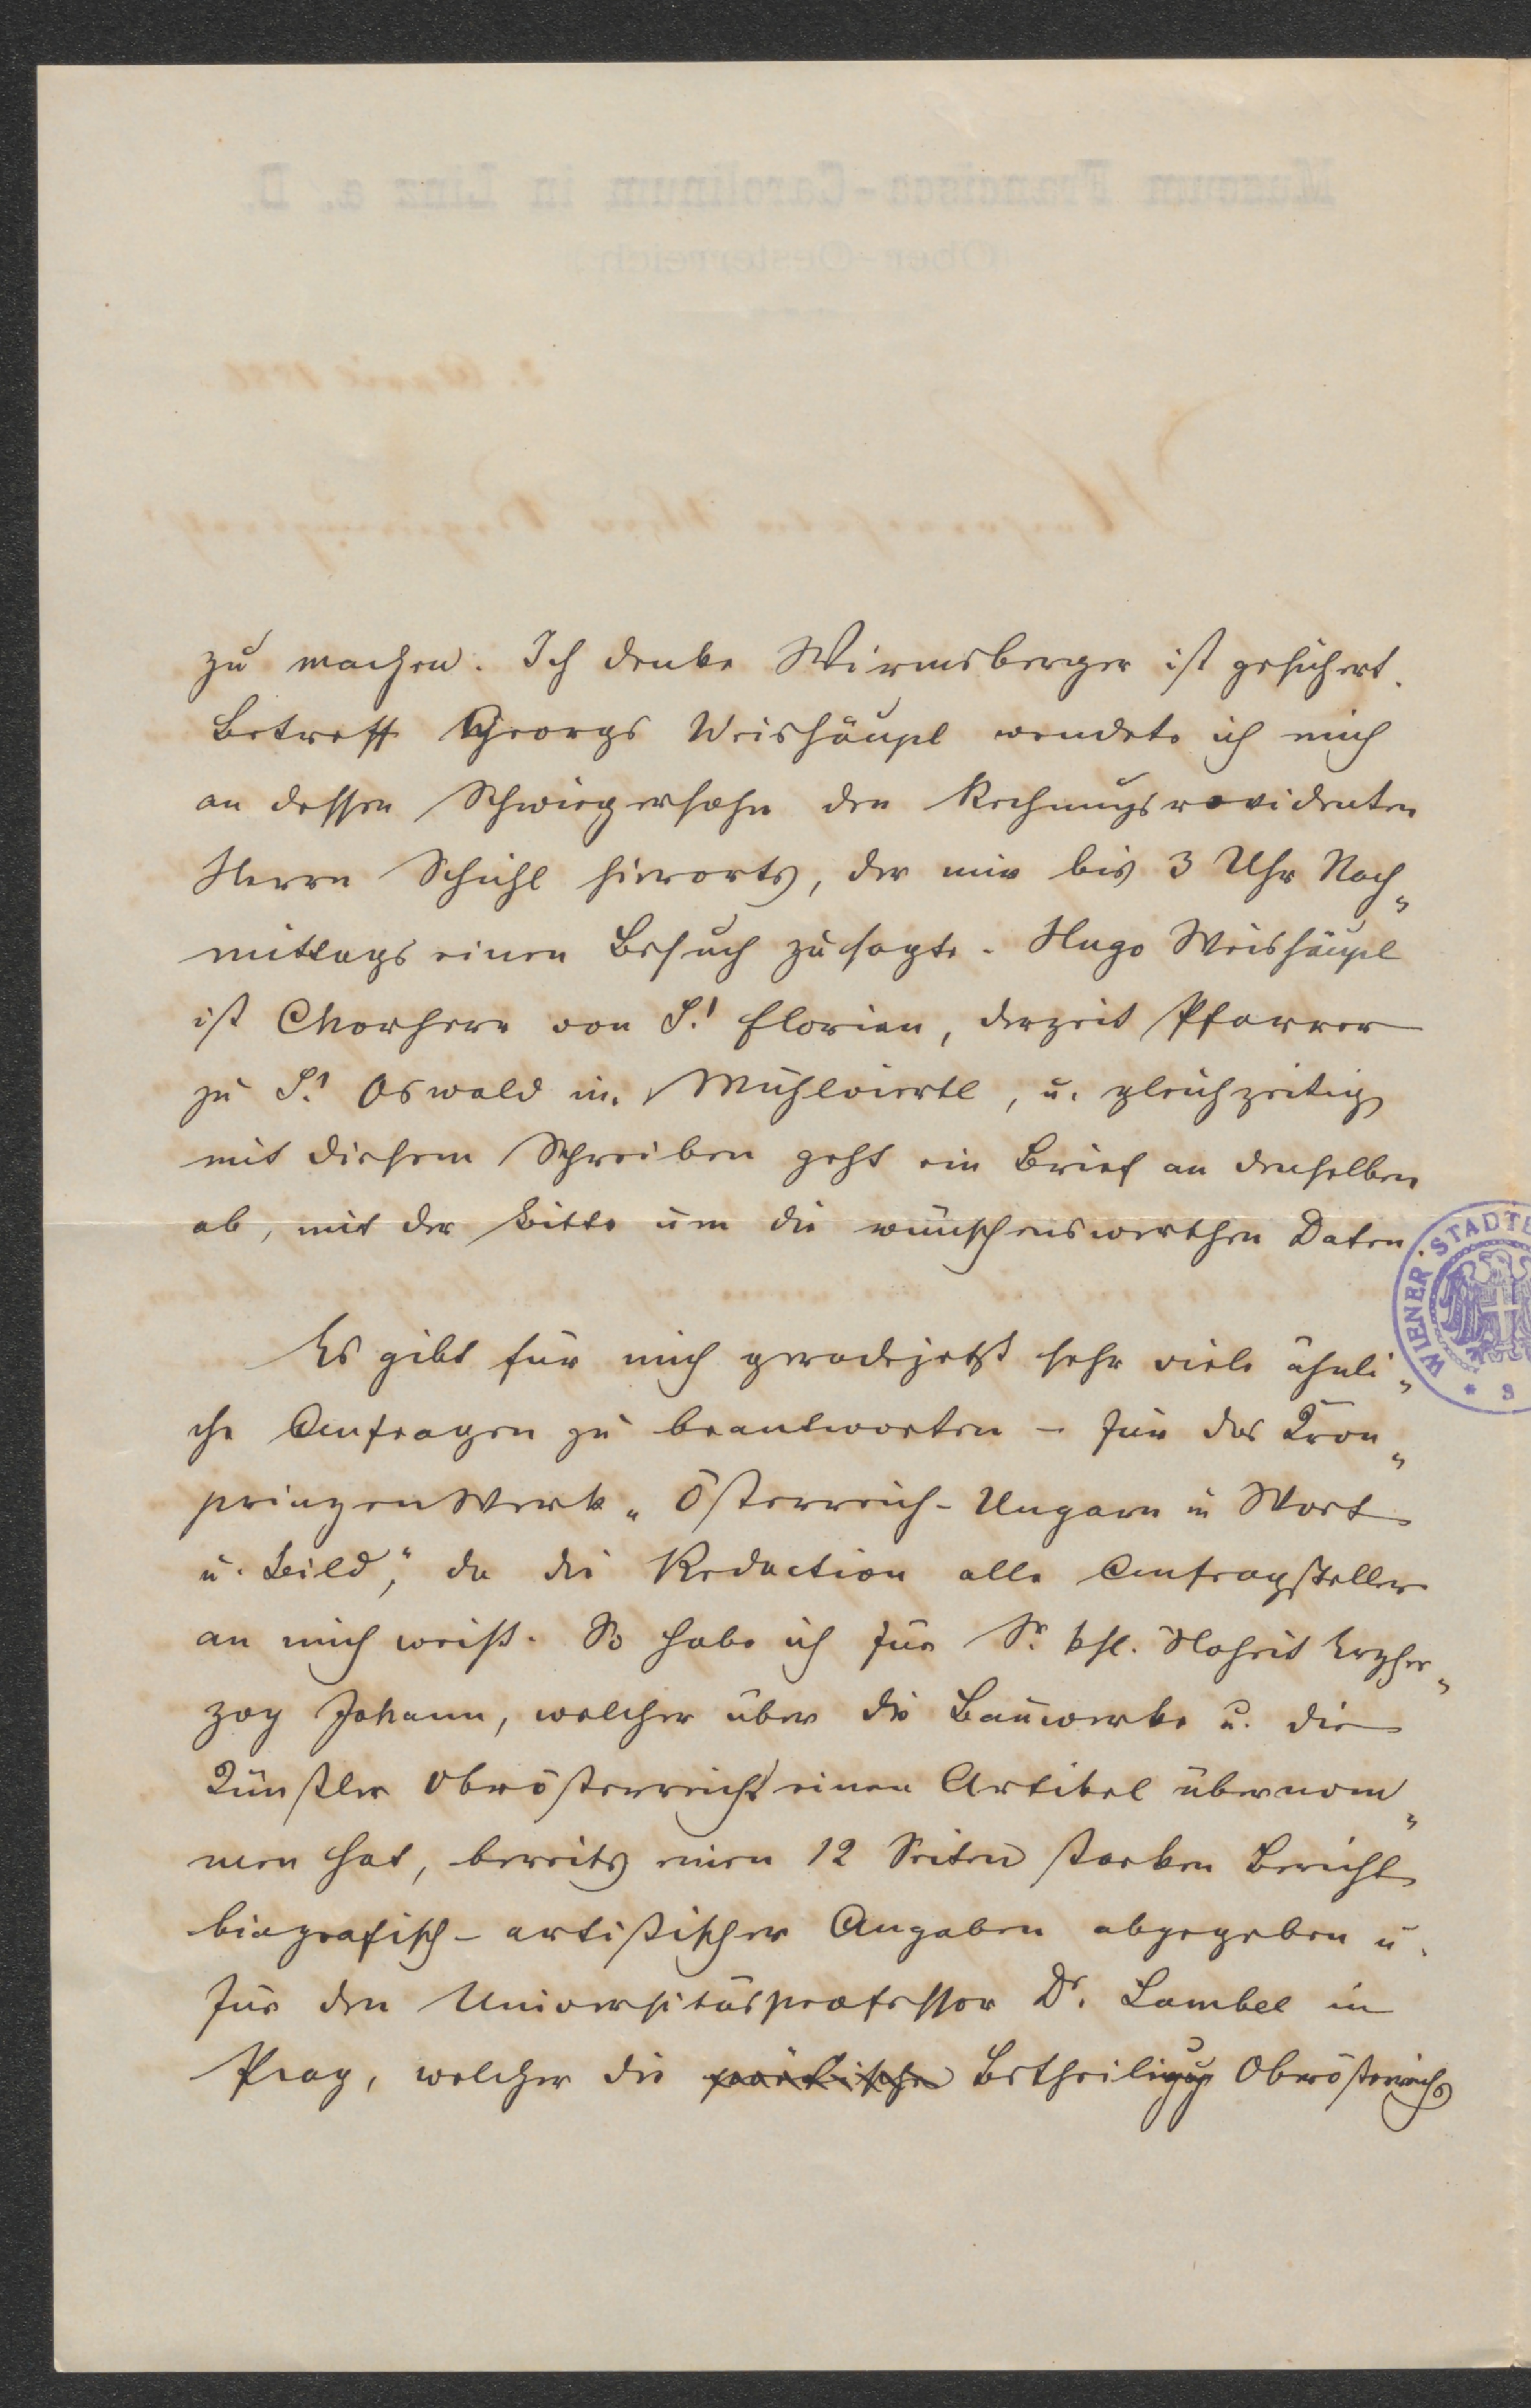 zu machen. Ich denke Wirmsberger ist gesichert.
Betreff Georgs Weishäupl wendete ich mich
an dessen Schwiegersohn den Rechnungsrevidenten
Herrn Schichl hierorts, der mir bis 3 Uhr Nach„
mittags einen Besuch zusagte. Hugo Weishäupl
ist Chorherr von St. Florian, derzeit Pfarrer
zu St. Oswald in. Mühlviertl, u. gleichzeitig
mit diesem Schreiben geht ein Brief an denselben
ab, mit der Bitte um die wünschenswerthen Daten
Es gibt für mich geradejetzt sehr viele ähnli„
che Anfragen zu beantworten – für das Kron„
prinzenwerk „Österreich-Ungarn in Wort
u. Bild“, da die Redaction alle Anfragsteller
an mich weist. So habe ich für Sr. ksl. Hoheit Erzher„
zog Johann, welcher über die Bauwerke u. die
Künstler Oberösterreichs einen Artikel übernom„
men hat, bereits einen 12 Seiten starken Bericht
biografisch-artistischer Angaben abgegeben u.
für den Universitätsprofessor Dr. Lambel in
Prag, welcher die poetische Betheiligung Oberösterreichs
WIENER STADTB
Museum Francisco-Carolinum in Linz a. D.
(Ober-Oesterreich.)